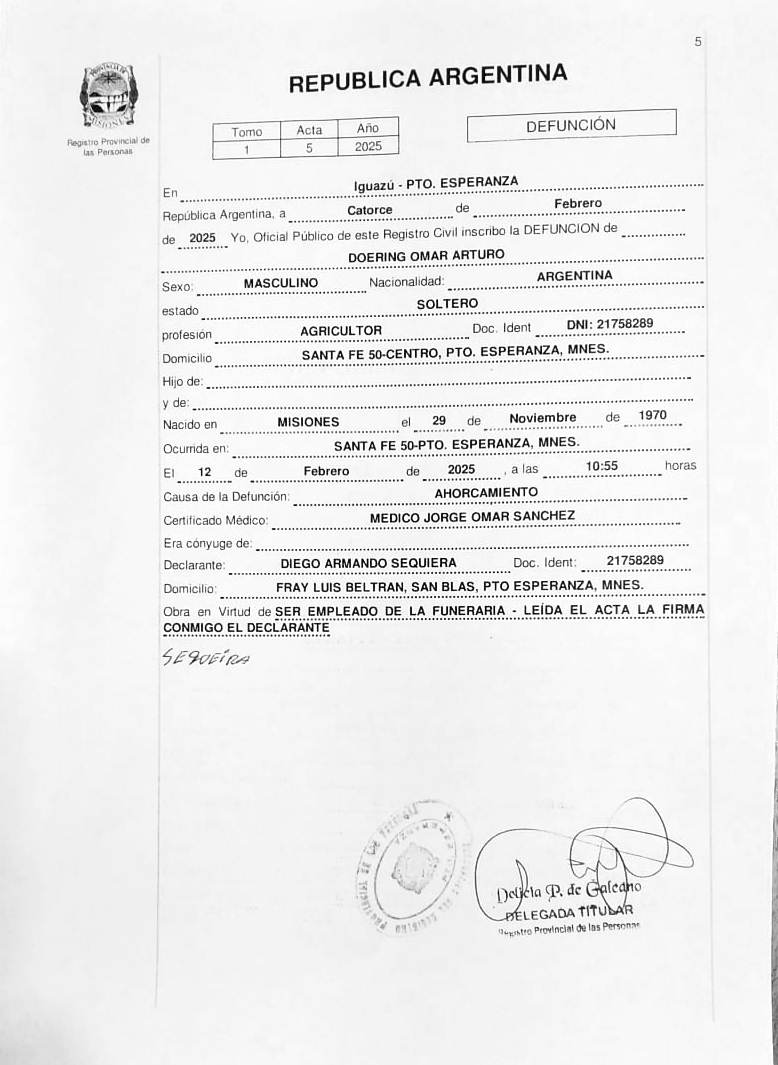 5
REPUBLICA ARGENTINA
PROVINCIA DE
MISIONES
Registro Provincial de
las Personas
Tomo Acta Año
1 5 2025
DEFUNCIÓN
En Iguazú - PTO. ESPERANZA
República Argentina, a Catorce de Febrero
de 2025 Yo, Oficial Público de este Registro Civil inscribo la DEFUNCION de
DOERING OMAR ARTURO
Sexo: MASCULINO Nacionalidad: ARGENTINA
estado SOLTERO
profesión AGRICULTOR Doc. Ident DNI: 21758289
Domicilio SANTA FE 50-CENTRO, PTO. ESPERANZA, MNES.
Hijo de:
y de:
Nacido en MISIONES el 29 de Noviembre de 1970
Ocurrida en: SANTA FE 50-PTO. ESPERANZA, MNES.
El 12 de Febrero de 2025, a las 10:55 horas
Causa de la Defunción: AHORCAMIENTO
Certificado Médico: MEDICO JORGE OMAR SANCHEZ
Era cónyuge de:
Declarante: DIEGO ARMANDO SEQUIERA Doc. Ident: 21758289
Domicilio: FRAY LUIS BELTRAN, SAN BLAS, PTO ESPERANZA, MNES.
Obra en Virtud de SER EMPLEADO DE LA FUNERARIA - LEÍDA EL ACTA LA FIRMA
CONMIGO EL DECLARANTE
SEQUEIRA
Delicia P. de Galeano
DELEGADA TITULAR
Registro Provincial de las Personas